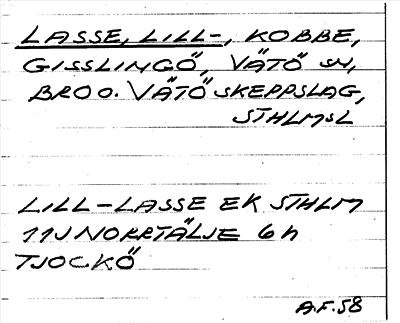 LASSE, LILL-, KOBBE,
GISSLINGÖ, VÄTÖ SN,
BRO O. VÄTÖ SKEPPSLAG,
STHLMSL
LILL-LASSE EK STHLM
11J NORRTÄLJE 6 h
TJOCKÖ
A.F. 58